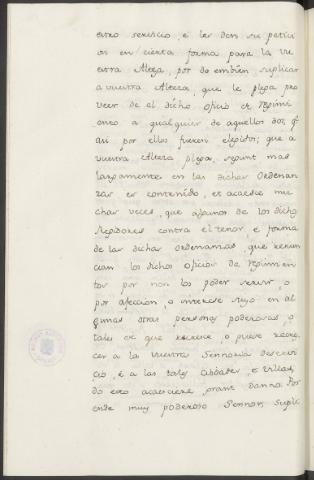 estro servicio, é les don su petici
on en cierta forma para la vu
estra Alteza, por do embien suplicar
a vuestra Alteza, que le plega pro
veer de el dicho oficio de regimi
ento a qualquier de aquellos dos, qe
asi por ellos fueren elegidos; que a
vuestra Alteza plega, segunt mas
largamente en las dichas Ordenan
zas es contenido, et acaesce mu
chas veces, que algunos de los dichos
Regidores contra el tenor, e forma
de las dichas ordenanzas, que renun
cian los dichos oficios de regimien
tos por non los poder servir o
por afeccion, o interese suyo en al
gunas otras personas poderosas, o
tales de que recrece, o puede recre
cer a la vuestra Sennoria deservi
cio, é a las tales Cibdades, e Villas,
do esto acaesciere, grant danno. Por
ende muy poderoso Sennor, supli